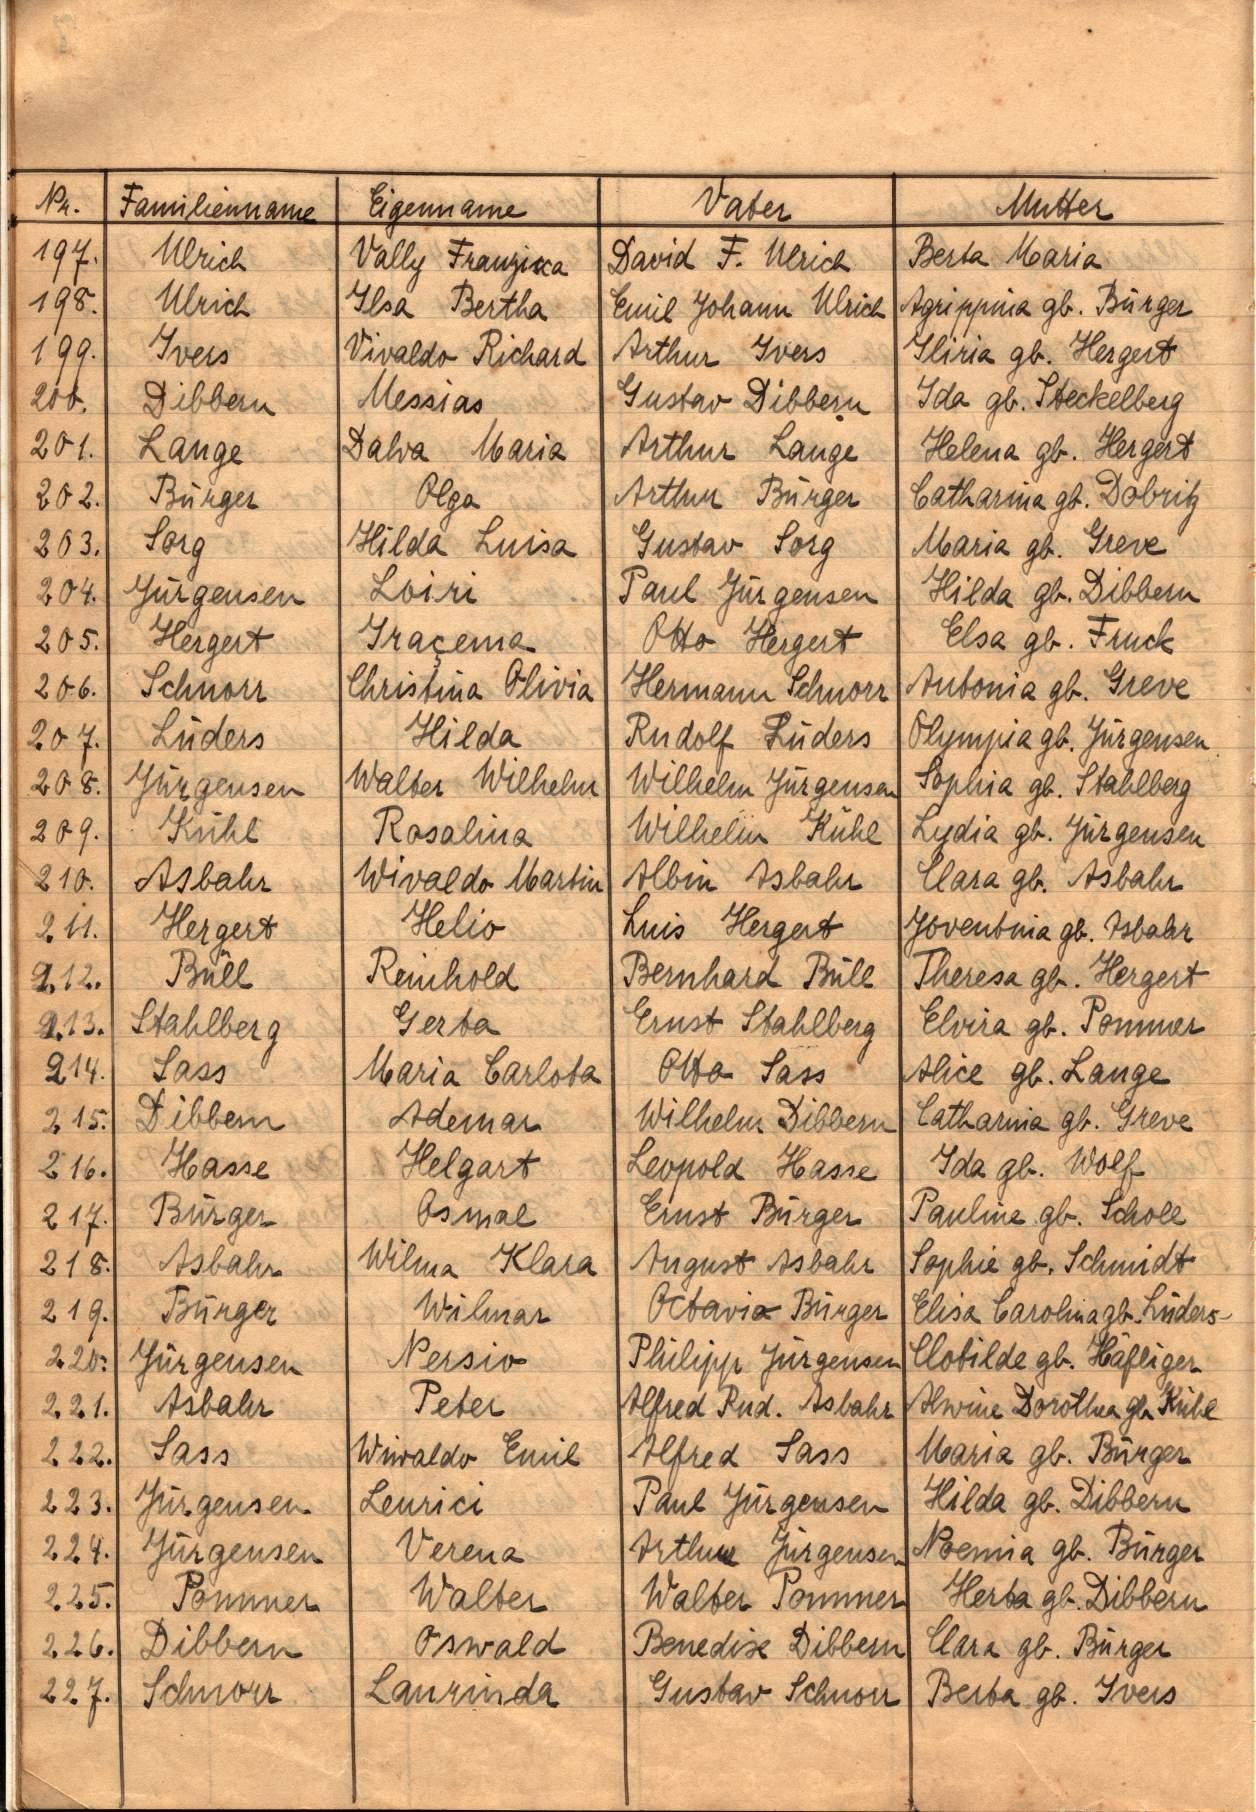 Nr. Familienname Eigenname Vater Mutter
197. Ulrich Vally Franziska David F. Ulrich Berta Maria
198. Ulrich Ilsa Bertha Emil Johann Ulrich Agrippina gb. Bürger
199. Ivers Vivaldo Richard Arthur Ivers Iliria gb. Hergert
200. Dibbern Messias Gustav Dibbern Ida gb. Steckelberg
201. Lange Dalva Maria Arthur Lange Helena gb. Hergert
202. Bürger Olga Arthur Bürger Catharina gb. Dobritz
203. Sorg Hilda Luisa Gustav Sorg Maria gb. Greve
204. Jürgensen Loiri Paul Jürgensen Hilda gb. Dibbern
205. Hergert Iraçema Otto Hergert Elsa gb. Fruck
206. Schnorr Christina Olivia Hermann Schnorr Antonia gb. Greve
207. Lüders Hilda Rudolf Lüders Olympia gb. Jürgensen
208. Jürgensen Walter Wilhelm Wilhelm Jürgensen Sophia gb. Stahlberg
209. Kühl Rosalina Wilhelm Kühl Lydia gb. Jürgensen
210. Asbahr Wivaldo Martin Albin Asbahr Clara gb. Asbahr
211. Hergert Helio Luis Hergert Joventina gb. Asbahr
212. Büll Reinhold Bernhard Büll Theresa gb. Hergert
213. Stahlberg Gerta Ernst Stahlberg Elvira gb. Pommer
214. Sass Maria Carlota Otto Sass Alice gb. Lange
215. Dibbern Ademar Wilhelm Dibbern Catharina gb. Greve
216. Hasse Helgart Leopold Hasse Ida gb. Wolf
217. Bürger Osmal Ernst Bürger Pauline gb. Scholl
218. Asbahr Wilma Klara August Asbahr Sophie gb. Schmidt
219. Bürger Wilmar Octavio Bürger Elisa Carolina gb. Lüders
220. Jürgensen Nersio Philipp Jürgensen Clotilde gb. Häfliger
221. Asbahr Peter Alfred Rud. Asbahr Alwine Dorothea gb. Kühl
222. Sass Wiwaldo Emil Alfred Sass Maria gb. Bürger
223. Jürgensen Leurici Paul Jürgensen Hilda gb. Dibbern
224. Jürgensen Verena Arthur Jürgensen Noemia gb. Bürger
225. Pommer Walter Walter Pommer Herta gb. Dibbern
226. Dibbern Oswald Benedix Dibbern Clara gb. Bürger
227. Schnorr Laurinda Gustav Schnorr Berta gb. Ivers